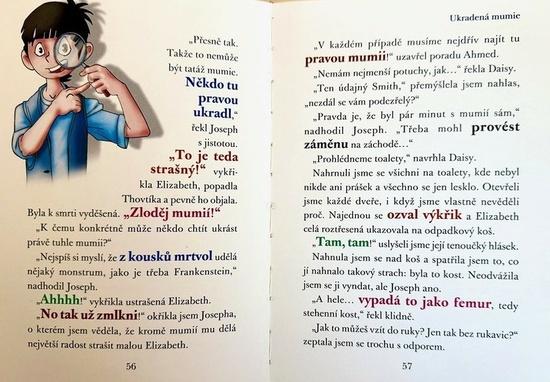 „Přesně tak.
Takže to nemůže
být tatáž mumie.
Někdo tu
pravou
ukradl,“
řekl Joseph
s jistotou.
„To je teda
strašný!“ vykři-
kla Elizabeth, popadla
Thovtíka a pevně ho objala.
Byla k smrti vyděšená. „Zloděj mumií!“
„K čemu konkrétně může někdo chtít ukrást
právě tuhle mumii?“
„Nejspíš si myslí, že z kousků mrtvol udělá
nějaký monstrum, jako je třeba Frankenstein,“
nadhodil Joseph.
„Ahhhh!“ vykřikla ustrašená Elizabeth.
„No tak už zmlkni!“ okřikla jsem Josepha,
o kterém jsem věděla, že kromě mumií mu dělá
největší radost strašit malou Elizabeth.
56
Ukradená mumie
„V každém případě musíme nejdřív najít tu
pravou mumii!“ uzavřel poradu Ahmed.
„Nemám nejmenší potuchy, jak…“ řekla Daisy.
„Ten údajný Smith,“ přemýšlela jsem nahlas,
„nezdál se vám podezřelý?“
„Pravda je, že byl pár minut s mumií sám,“
nadhodil Joseph. „Třeba mohl provést
záměnu na záchodě…“
„Prohlédneme toalety,“ navrhla Daisy.
Nahrnuli jsme se všichni na toalety, kde nebyl
nikde ani prášek a všechno se jen lesklo. Otevřeli
jsme každé dveře, i když jsme vlastně nevěděli
proč. Najednou se ozval výkřik a Elizabeth
celá roztřesená ukazovala na odpadkový koš.
„Tam, tam!“ uslyšeli jsme její tenoučký hlásek.
Nahnula jsem se nad koš a spatřila jsem to, co
jí nahnalo takový strach: byla to kost. Neodvážila
jsem se jí vyndat, ale Joseph ano.
„A hele… vypadá to jako femur, tedy
stehenní kost,“ řekl klidně.
„Jak to můžeš vzít do ruky? Jen tak bez rukavic?“
zeptala jsem se trochu s odporem.
57